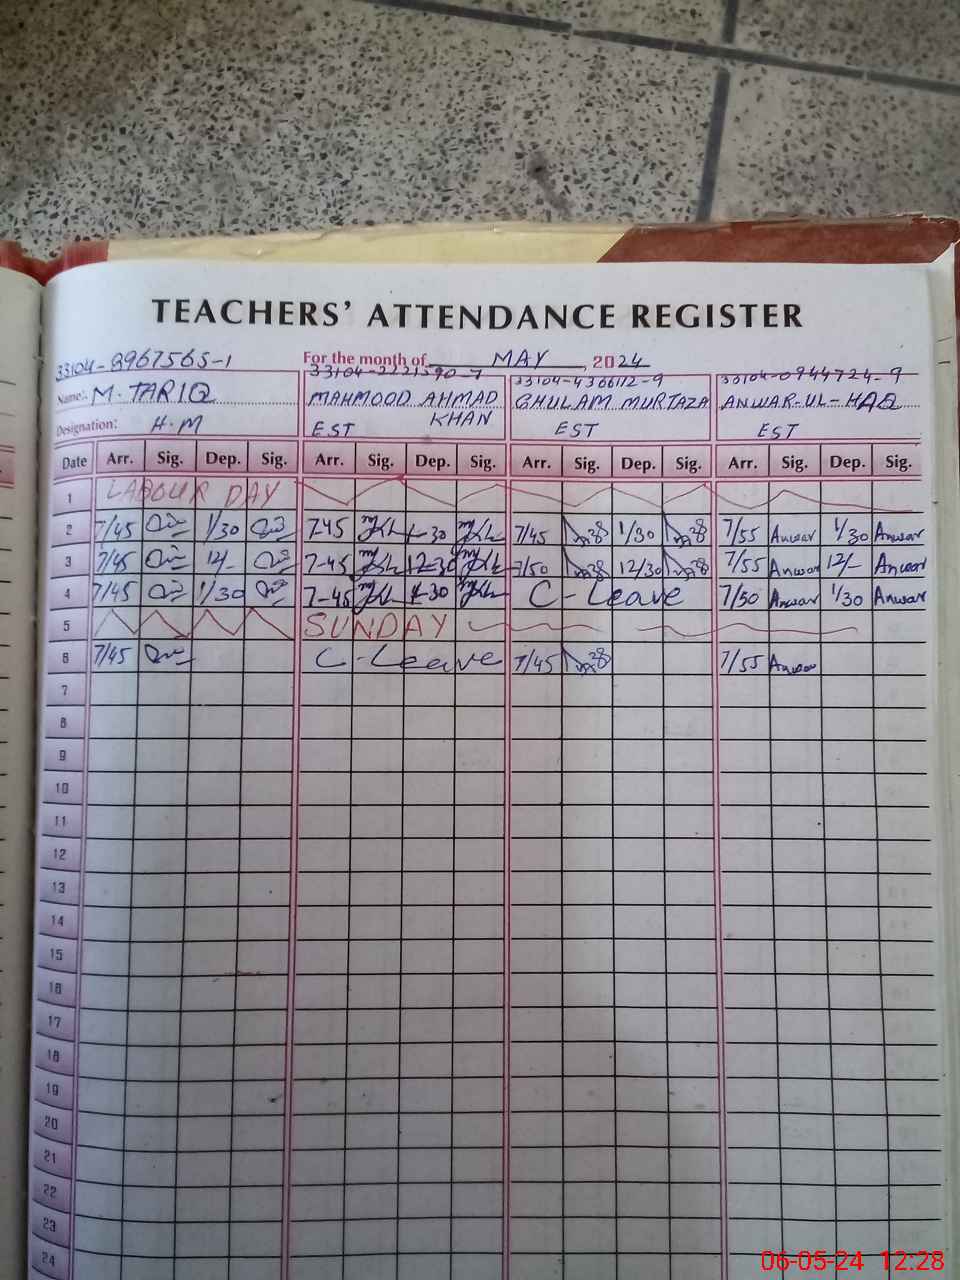 TEACHERS' ATTENDANCE REGISTER
33104-8967565-1 For the month of MAY, 2024
33104-2221590-7 33104-4306112-9 33104-0944724-9
Name: M. TARIQ MAHMOOD AHMAD KHAN GHULAM MURTAZA ANWAR-UL-HAQ
Designation: H.M EST EST EST
Date Arr. Sig. Dep. Sig. Arr. Sig. Dep. Sig. Arr. Sig. Dep. Sig. Arr. Sig. Dep. Sig.
1 LABOUR DAY
2 7/45 1/30 7-45 1-30 7/45 1/30 7/55 Anwar 1/30 Anwar
3 7/45 12/- 7-45 12-30 7/50 12/30 7/55 Anwar 12/- Anwar
4 7/45 1/30 7-45 1-30 C-Leave 7/50 Anwar 1/30 Anwar
5 SUNDAY
6 7/45 C-Leave 7/45 7/55 Anwar
7
8
9
10
11
12
13
14
15
16
17
18
19
20
21
22
23
24
06-05-24 12:28